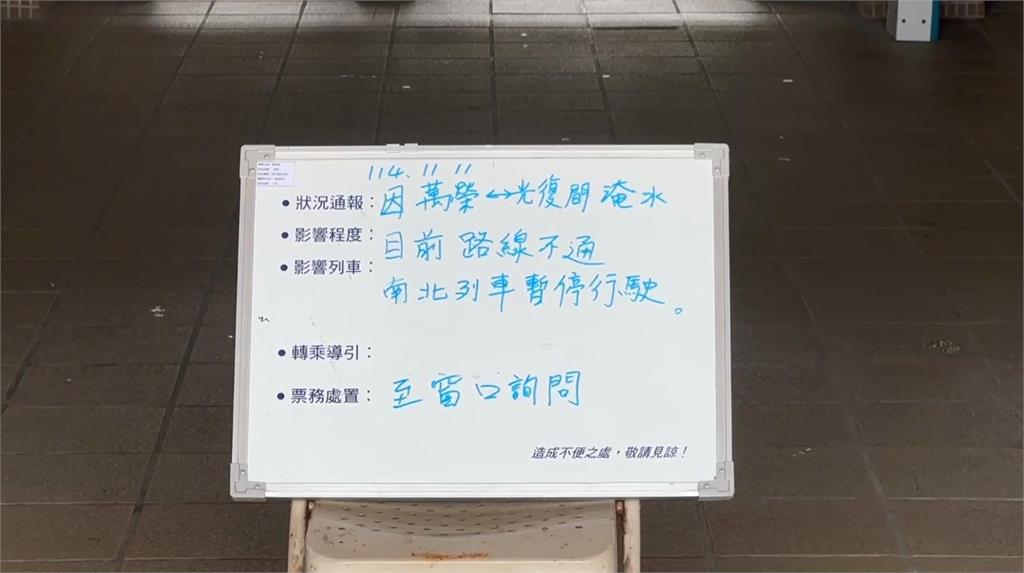 114.11 11
● 狀況通報：因萬榮↔光復間淹水
● 影響程度：目前路線不通
● 影響列車：南北列車暫停行駛。
● 轉乘導引：
● 票務處置：至窗口詢問
造成不便之處，敬請見諒！